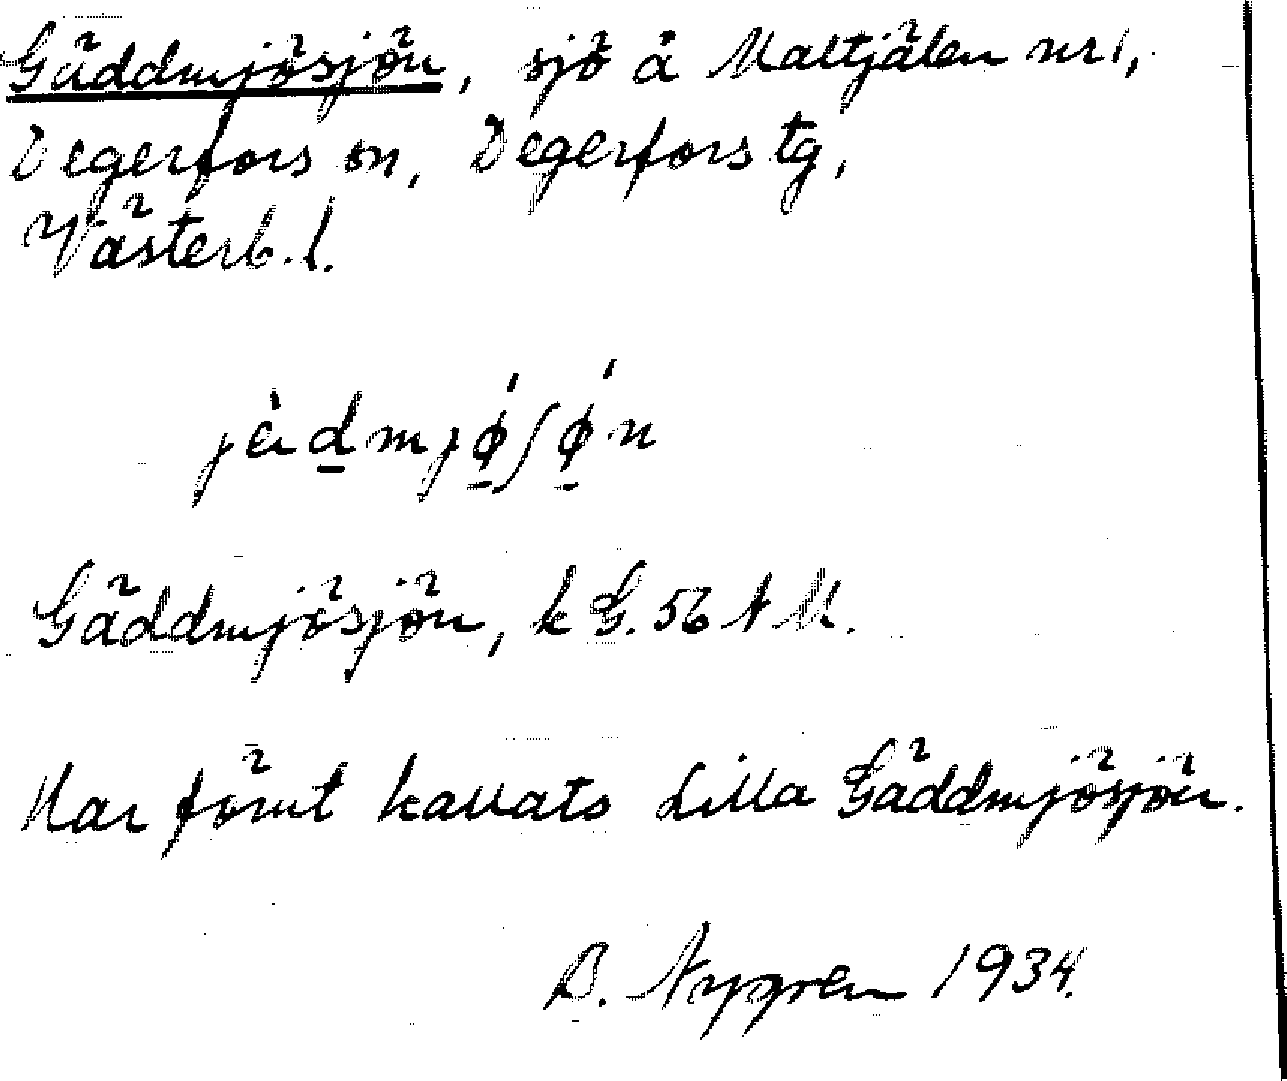 Gäddmjösjön, sjö å Maltjälen nr 1,
Degerfors sn, Degerfors tg,
Västerb. l.
jèdmjǿʃǿn
Gäddmjösjön, k G. 56 N M.
Har förut kallats Lilla Gäddmjösjön.
B. Nygren 1934.